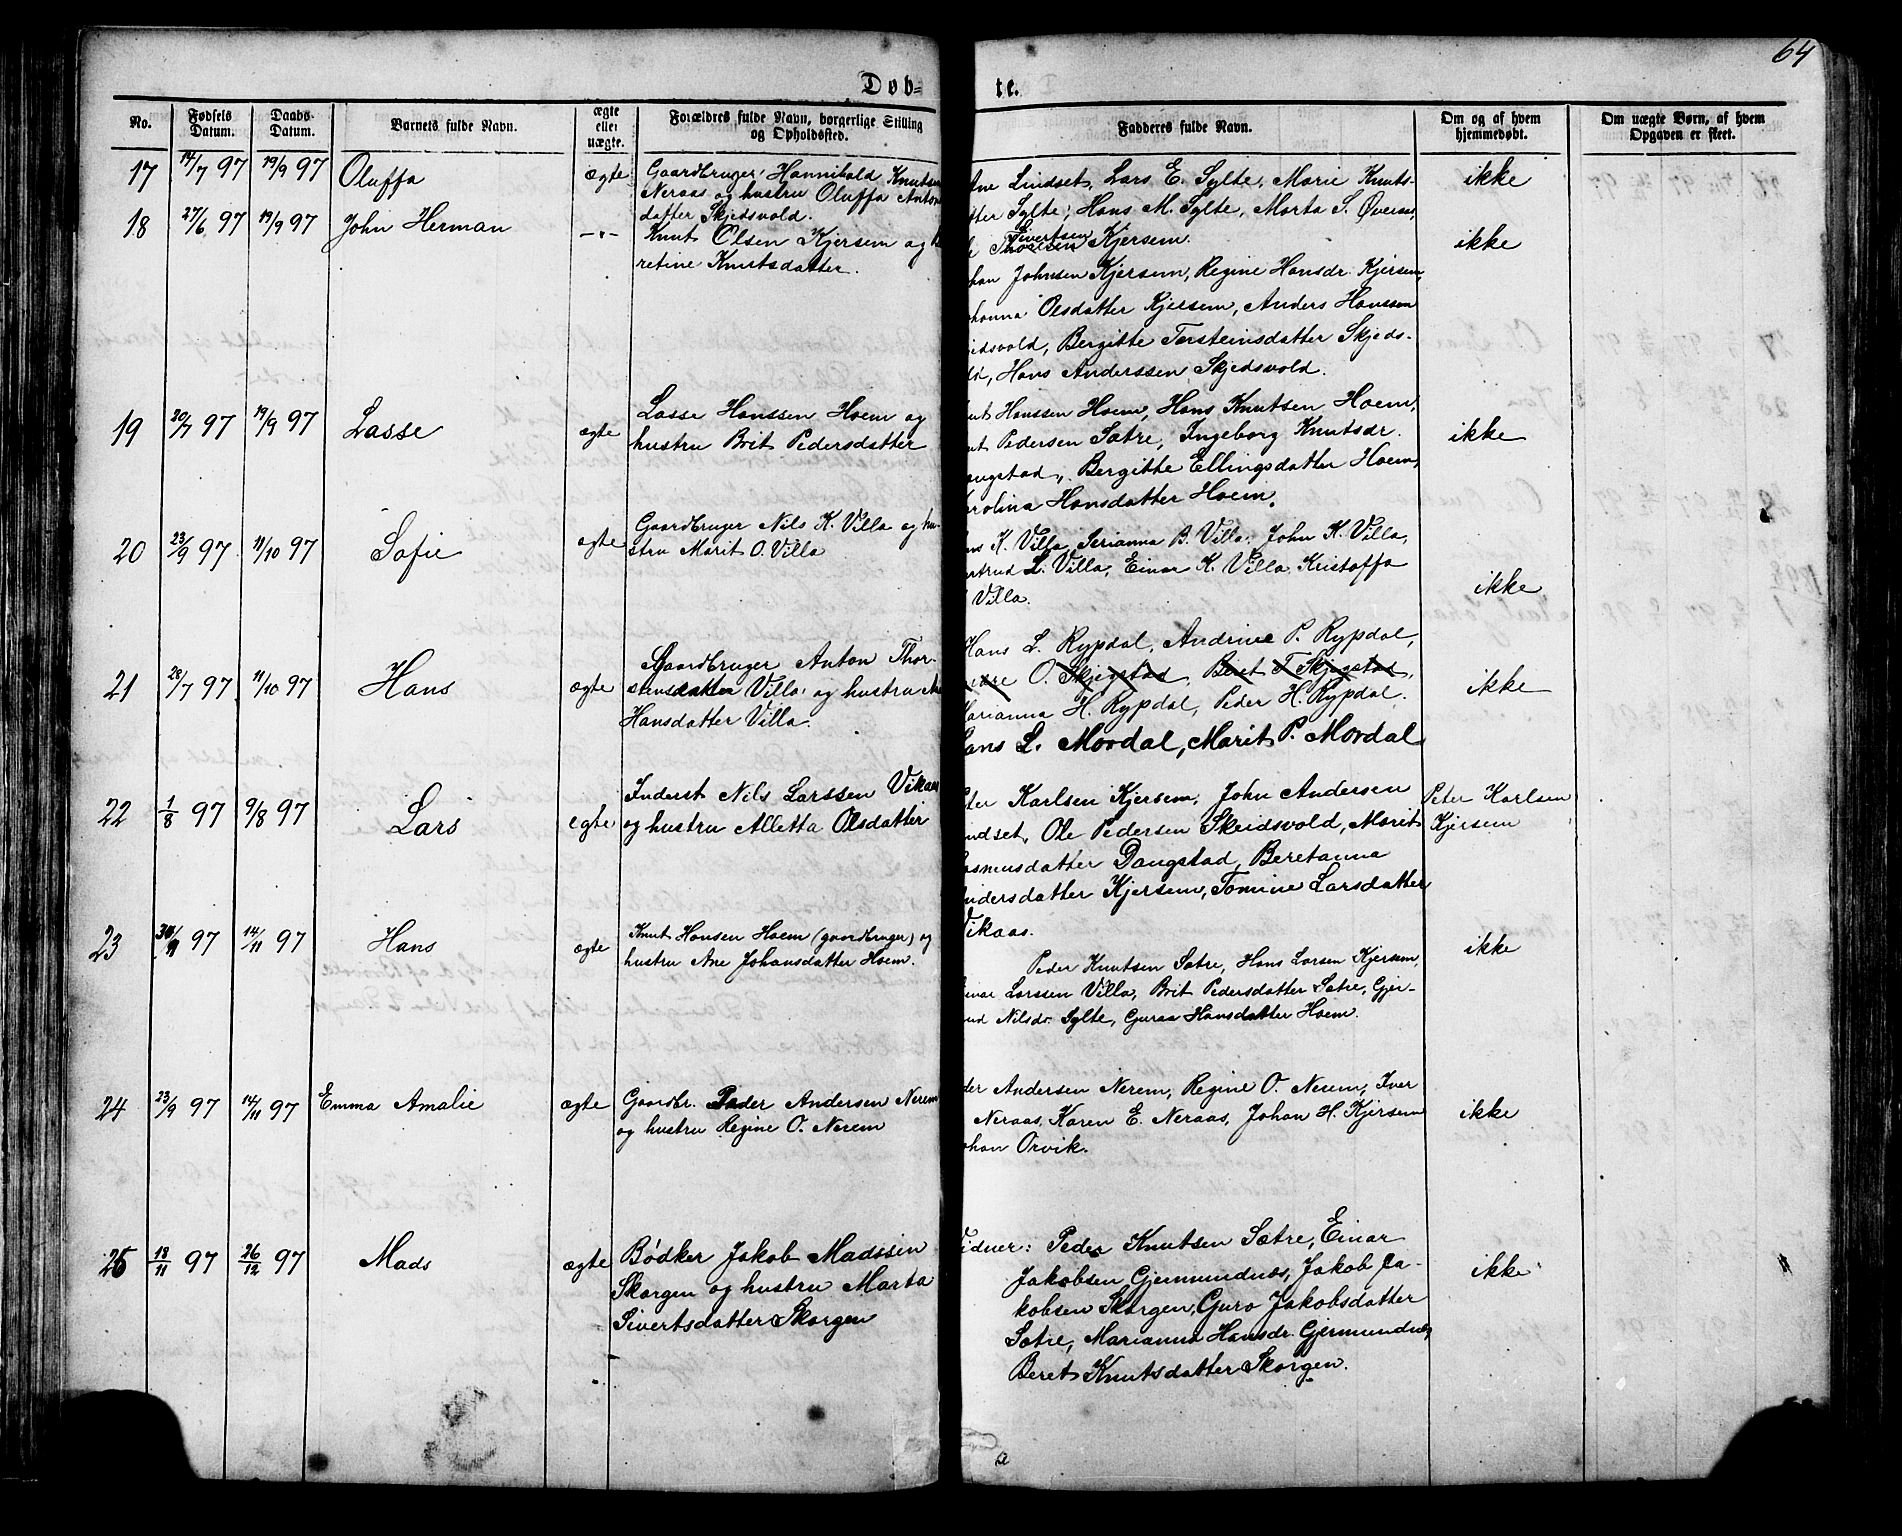 64
Døb= te.
No.
Fødsels Datum.
Daabs- Datum.
Barnets fulde Navn.
ægte eller uægte.
Forældres fulde Navn, borgerlige Stilling og Opholdssted.
Fadderes fulde Navn.
Om og af hvem hjemmedøbt.
Om uægte Børn, af hvem Opgaven er skeet.
17 14/7 97 19/9 97 Oluffa ægte
Gaardbruger Hannibald Knutsen
Neraas og hustru Oluffa Anton
datter Skjedsvold.
Lindset, Lars E. Sylte, Marie Knuts-
tter Sylte, Hans M. Sylte, Marta S. Øveraas,
ikke
18 27/6 97 19/9 97 John Herman -"-
Knut Olsen Kjersem og
retine Knutsdatter.
Sivertsen
Thoresen Kjersem.
han Johnsen Kjersem, Regine Hansdr. Kjersem,
ohanna Olsdatter Kjersem, Anders Hanssen
jedsvold, Bergitte Torsteinsdatter Skjeds-
ld, Hans Anderssen Skjedsvold.
ikke
19 20/7 97 19/9 97 Lasse ægte
Lasse Hanssen Hoem og
hustru Brit Pedersdatter
nut Hanssen Hoem, Hans Knutsen Hoem,
nut Pedersen Sætre, Ingeborg Knutsdr.
angstad, Bergitte Ellingsdatter Hoem,
arolina Hansdatter Hoem.
ikke
20 23/9 97 11/10 97 Sofie ægte
Gaardbruger Nils K. Villa og hu-
stru Marit O. Villa
ns K. Villa, Serianna B. Villa, John K. Villa,
ertrud L. Villa, Einar K. Villa, Kristoffa
Villa.
ikke
21 28/7 97 11/10 97 Hans ægte
Gaardbruger Anton Thor-
stensdatter Villa og hustru
Hansdatter Villa.
Hans L. Rypdal, Andrine P. Rypdal,
O. Skjegstad, Beret T. Skjegstad,
Marianna H. Rypdal, Peder H. Rypdal.
Hans L. Mordal, Marit P. Mordal
ikke
22 1/8 97 9/8 97 Lars ægte
Inderst Nils Larssen Vikaas
og hustru Alletta Olsdatter
eter Karlsen Kjersem, John Andersen
indset, Ole Pedersen Skeidsvold, Marit
asmusdatter Dangstad, Beretanna
ndersdatter Kjersem, Tomine Larsdatter
Vikaas.
Peter Karlsen
Kjersem
23 97 14/11 97 Hans ægte
Knut Hansen Hoem (gaardbruger) og
hustru Ane Johansdatter Hoem.
Peder Knutsen Sætre, Hans Larsen Kjersem,
Einar Larssen Villa, Brit Pedersdatter Sætre, Gjer-
ud Nilsdr. Sylte, Guraa Hansdatter Hoem.
ikke
24 23/9 97 14/11 97 Emma Amalie ægte
Gaardbr. Peder Andersen Nerem
og hustru Regine O. Nerem
eder Andersen Nerem, Regine O. Nerem, Iver
Neraas, Karen E. Neraas, Johan H. Kjersem
ohan Orvik.
ikke
25 18/11 97 26/12 97 Mads ægte
Bødker Jakob Madssen
Skorgen og hustru Marta
Sivertsdatter Skorgen
Vidner: Peder Knutsen Sætre, Einar
Jakobsen Gjermundnes, Jakob Ja-
kobsen Skorgen, Guro Jakobsdatter
Sætre, Marianna Hansdr. Gjermundnes,
Beret Knutsdatter Skorgen.
ikke